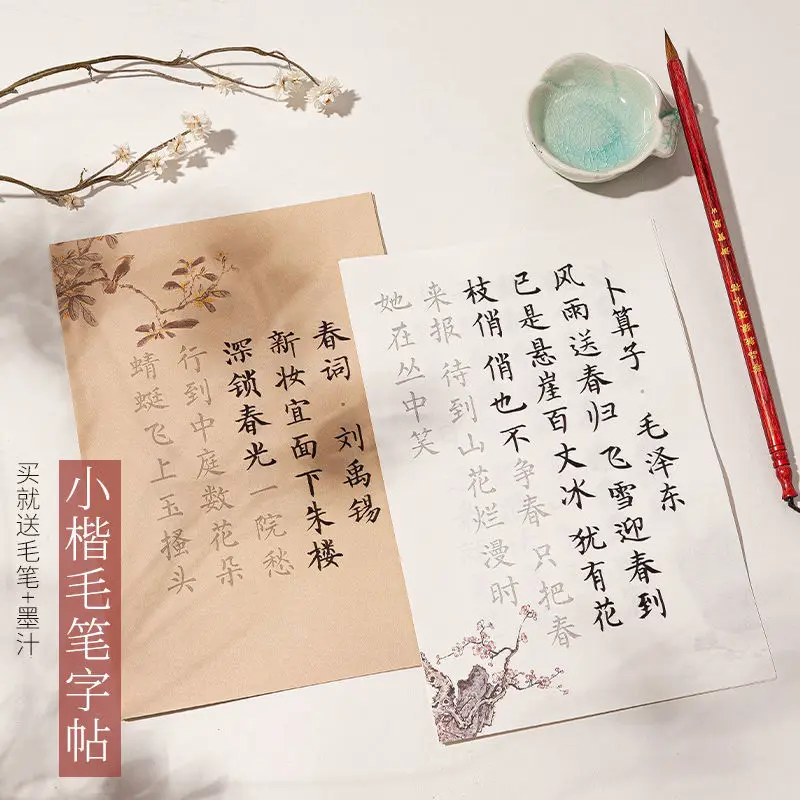 卜算子·毛泽东
风雨送春归 飞雪迎春到
已是悬崖百丈冰 犹有花
枝俏 俏也不争春 只把春
来报 待到山花烂漫时
她在丛中笑
春词·刘禹锡
新妆宜面下朱楼
深锁春光一院愁
行到中庭数花朵
蜻蜓飞上玉搔头
小楷毛笔字帖
买就送毛笔+墨汁